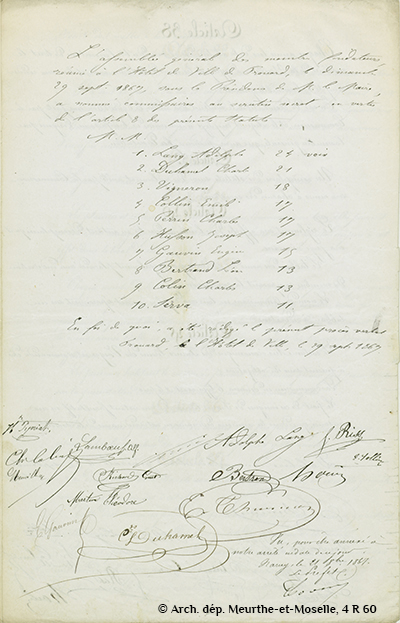 L'assemblée générale des membres fondateurs,
réunie à l'Hôtel de Ville de Frouard, le Dimanche
29 sept. 1867, sous la Présidence de M. le Maire,
a nommé commissaires au scrutin secret, en vertu
de l'article 3 des présents Statuts.
M.M.
1. Lang Adolphe 25 voix
2. Duhamel Charles 21
3. Vigneron 18
4. Collin Emile 17
5. Perrin Charles 17
6. Husson Joseph 17
7. Gauvin Eugène 15
8. Bertrand Léon 13
9. Colin Charles 13
10. Serva 11.
En foi de quoi a été rédigé le présent procès verbal
Frouard, à l'Hôtel de Ville, le 29 sept. 1867
Adolphe Lang
Ch. Colin
Bertrand
Martin Isidore
Ch Duhamel
Vu, pour être annexé à
notre arrêté en date de ce jour
Nancy, le 1867.
Le Préfet
© Arch. dép. Meurthe-et-Moselle, 4 R 60